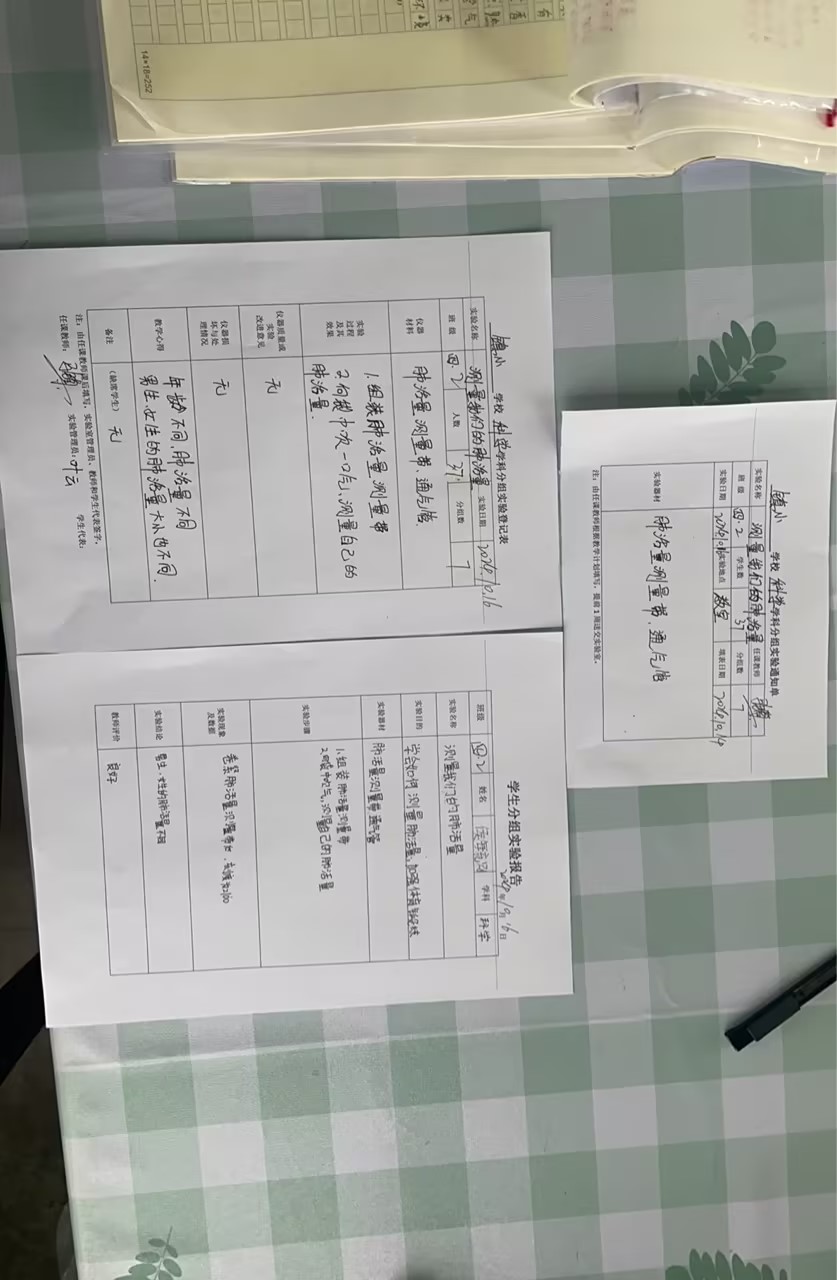 镇小 学校 科学学科分组实验通知单
实验名称 测量我们的肺活量 任课教师
班 级 四.2 学生数 37 分组数 7
实验日期 实验地点 教室 填表日期
实验器材 肺活量测量带、通气管
注：由任课教师根据教学计划填写，提前1周送交实验室。
镇小 学校 科学学科分组实验登记表
实验名称 测量我们的肺活量 实验日期
班 级 四.2 人数 37 分组数 7
仪器材料 肺活量测量带、通气管
实验过程及其效果 1.组装肺活量测量带
2.向袋中吹一口气、测量自己的
肺活量.
仪器质量或实验改进意见 无
仪器损坏与处理情况 无
教学心得 年龄不同,肺活量不同
男生女生的肺活量大小也不同.
备注 (缺席学生) 无
注：由任课教师课后填写，实验室管理员、教师和学生代表签字。
任课教师： 实验管理员：叶云 学生代表：
学生分组实验报告
年10月16日
班级 四.2 姓名 学科 科学
实验名称 测量我们的肺活量
实验目的 学会如何测量肺活量,加强体育锻炼
实验器材 肺活量测量带 通气管
实验步骤 1.组装肺活量测量带
2.向袋中吹气,测量自己的肺活量
实验现象及数据
实验结论 男生、女生的肺活量不同
教师评价 良好
14×18=252